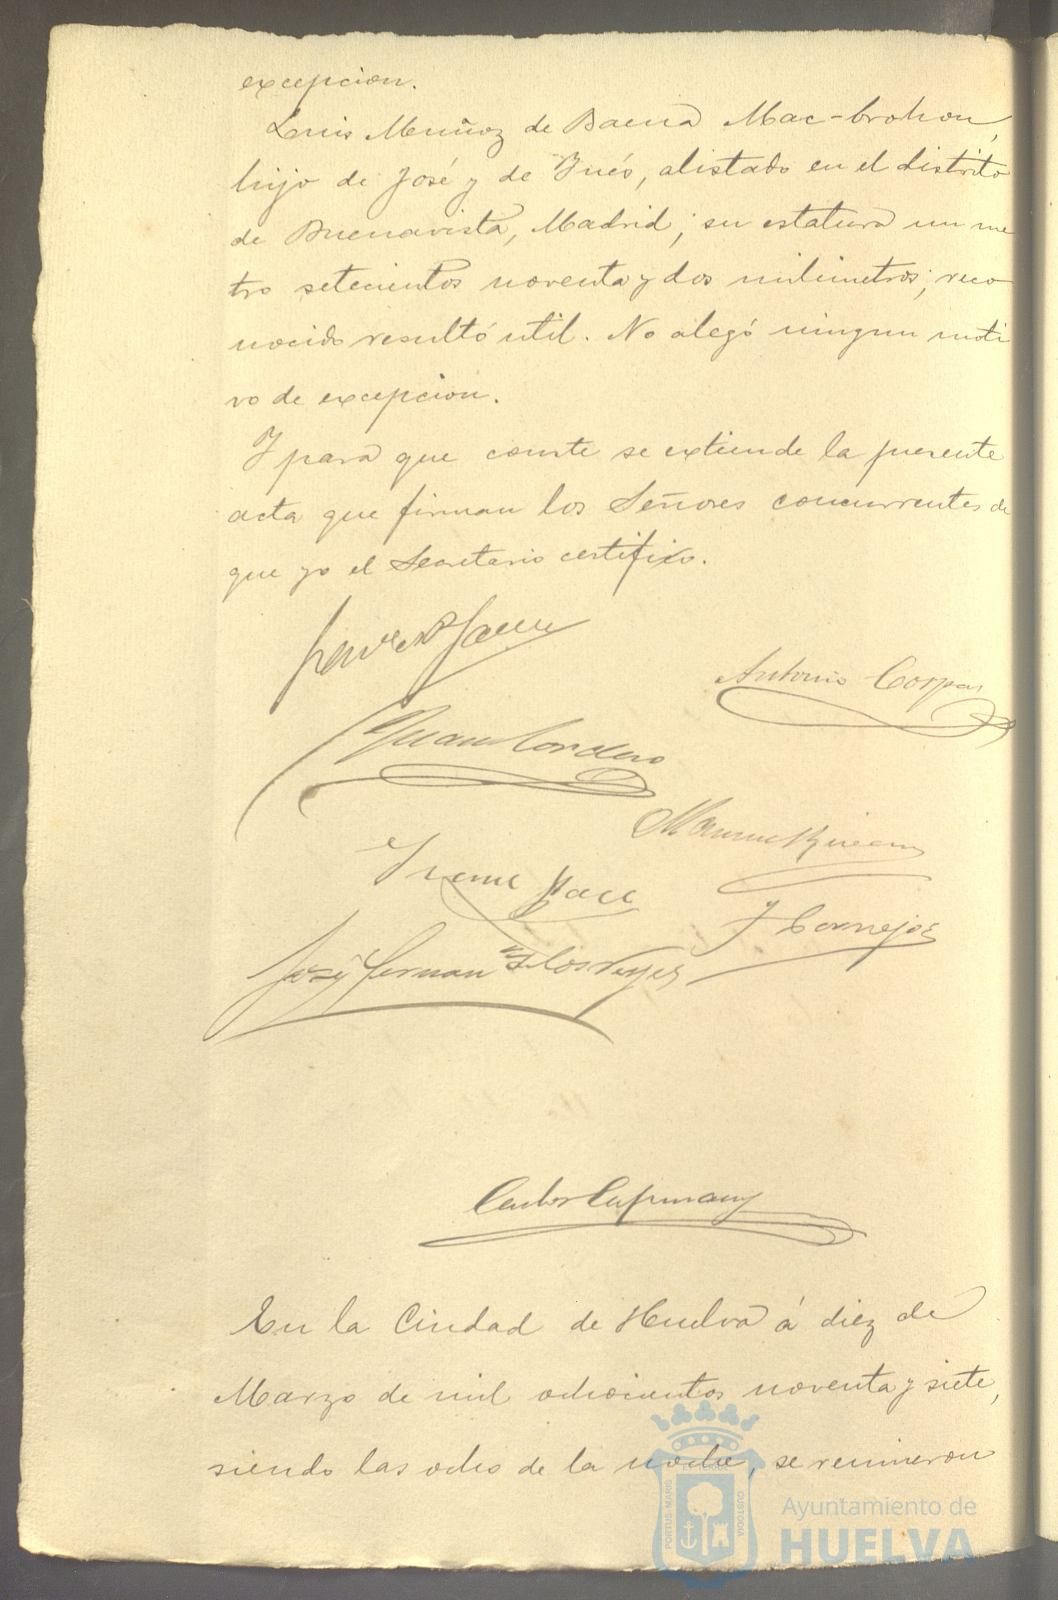 excepcion.
Luis Muñoz de Baena Mac-brohon,
hijo de José y de Inés, alistado en el distrito
de Buenavista, Madrid; su estatura un me
tro setecientos noventa y dos milimetros; reco
nocido resultó util. No alegó ningun moti
vo de excepcion.
Y para que conste se extiende la presente
acta que firman los Señores concurrentes de
que yo el Secretario certifico.
Antonio Corpas
Juan Cordero
Manuel
J Cornejo
José Fernan de los Reyes
Carlos Capmany
En la Ciudad de Huelva á diez de
Marzo de mil ochocientos noventa y siete,
siendo las ocho de la noche, se reunieron
PORTUS MARIS
CUSTODIA
Ayuntamiento de
HUELVA